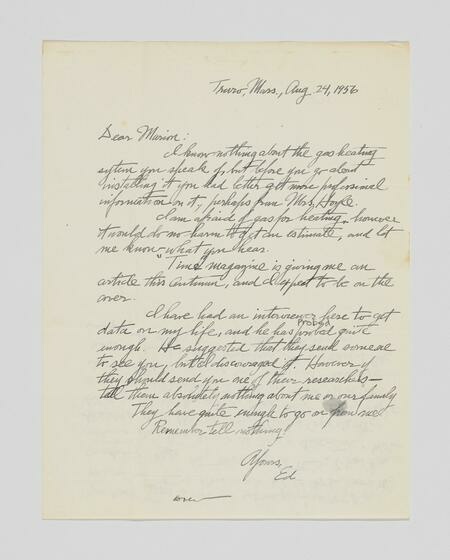 Truro, Mass., Aug 24, 1956
Dear Marion:
I know nothing about the gas heating
system you speak of, but before you go about
installing it you had better get more professional
information on it, perhaps from Mrs. Hoyle.
I am afraid of gas for heating, however
it would do no harm to get an estimate, and let
me know what you hear.
"Time magazine is giving me an
article this Autumn, and I expect to be on the
cover.
I have had an interviewer here to get
data on my life, and he has probed quite
Probed
enough. He suggested that they send someone
to see you, but I discouraged it. However if
they should send you one of their researchers—
tell them absolutely nothing about me or our family
They have quite enough to go on from me
Remember tell nothing!
Yours,
Ed
over